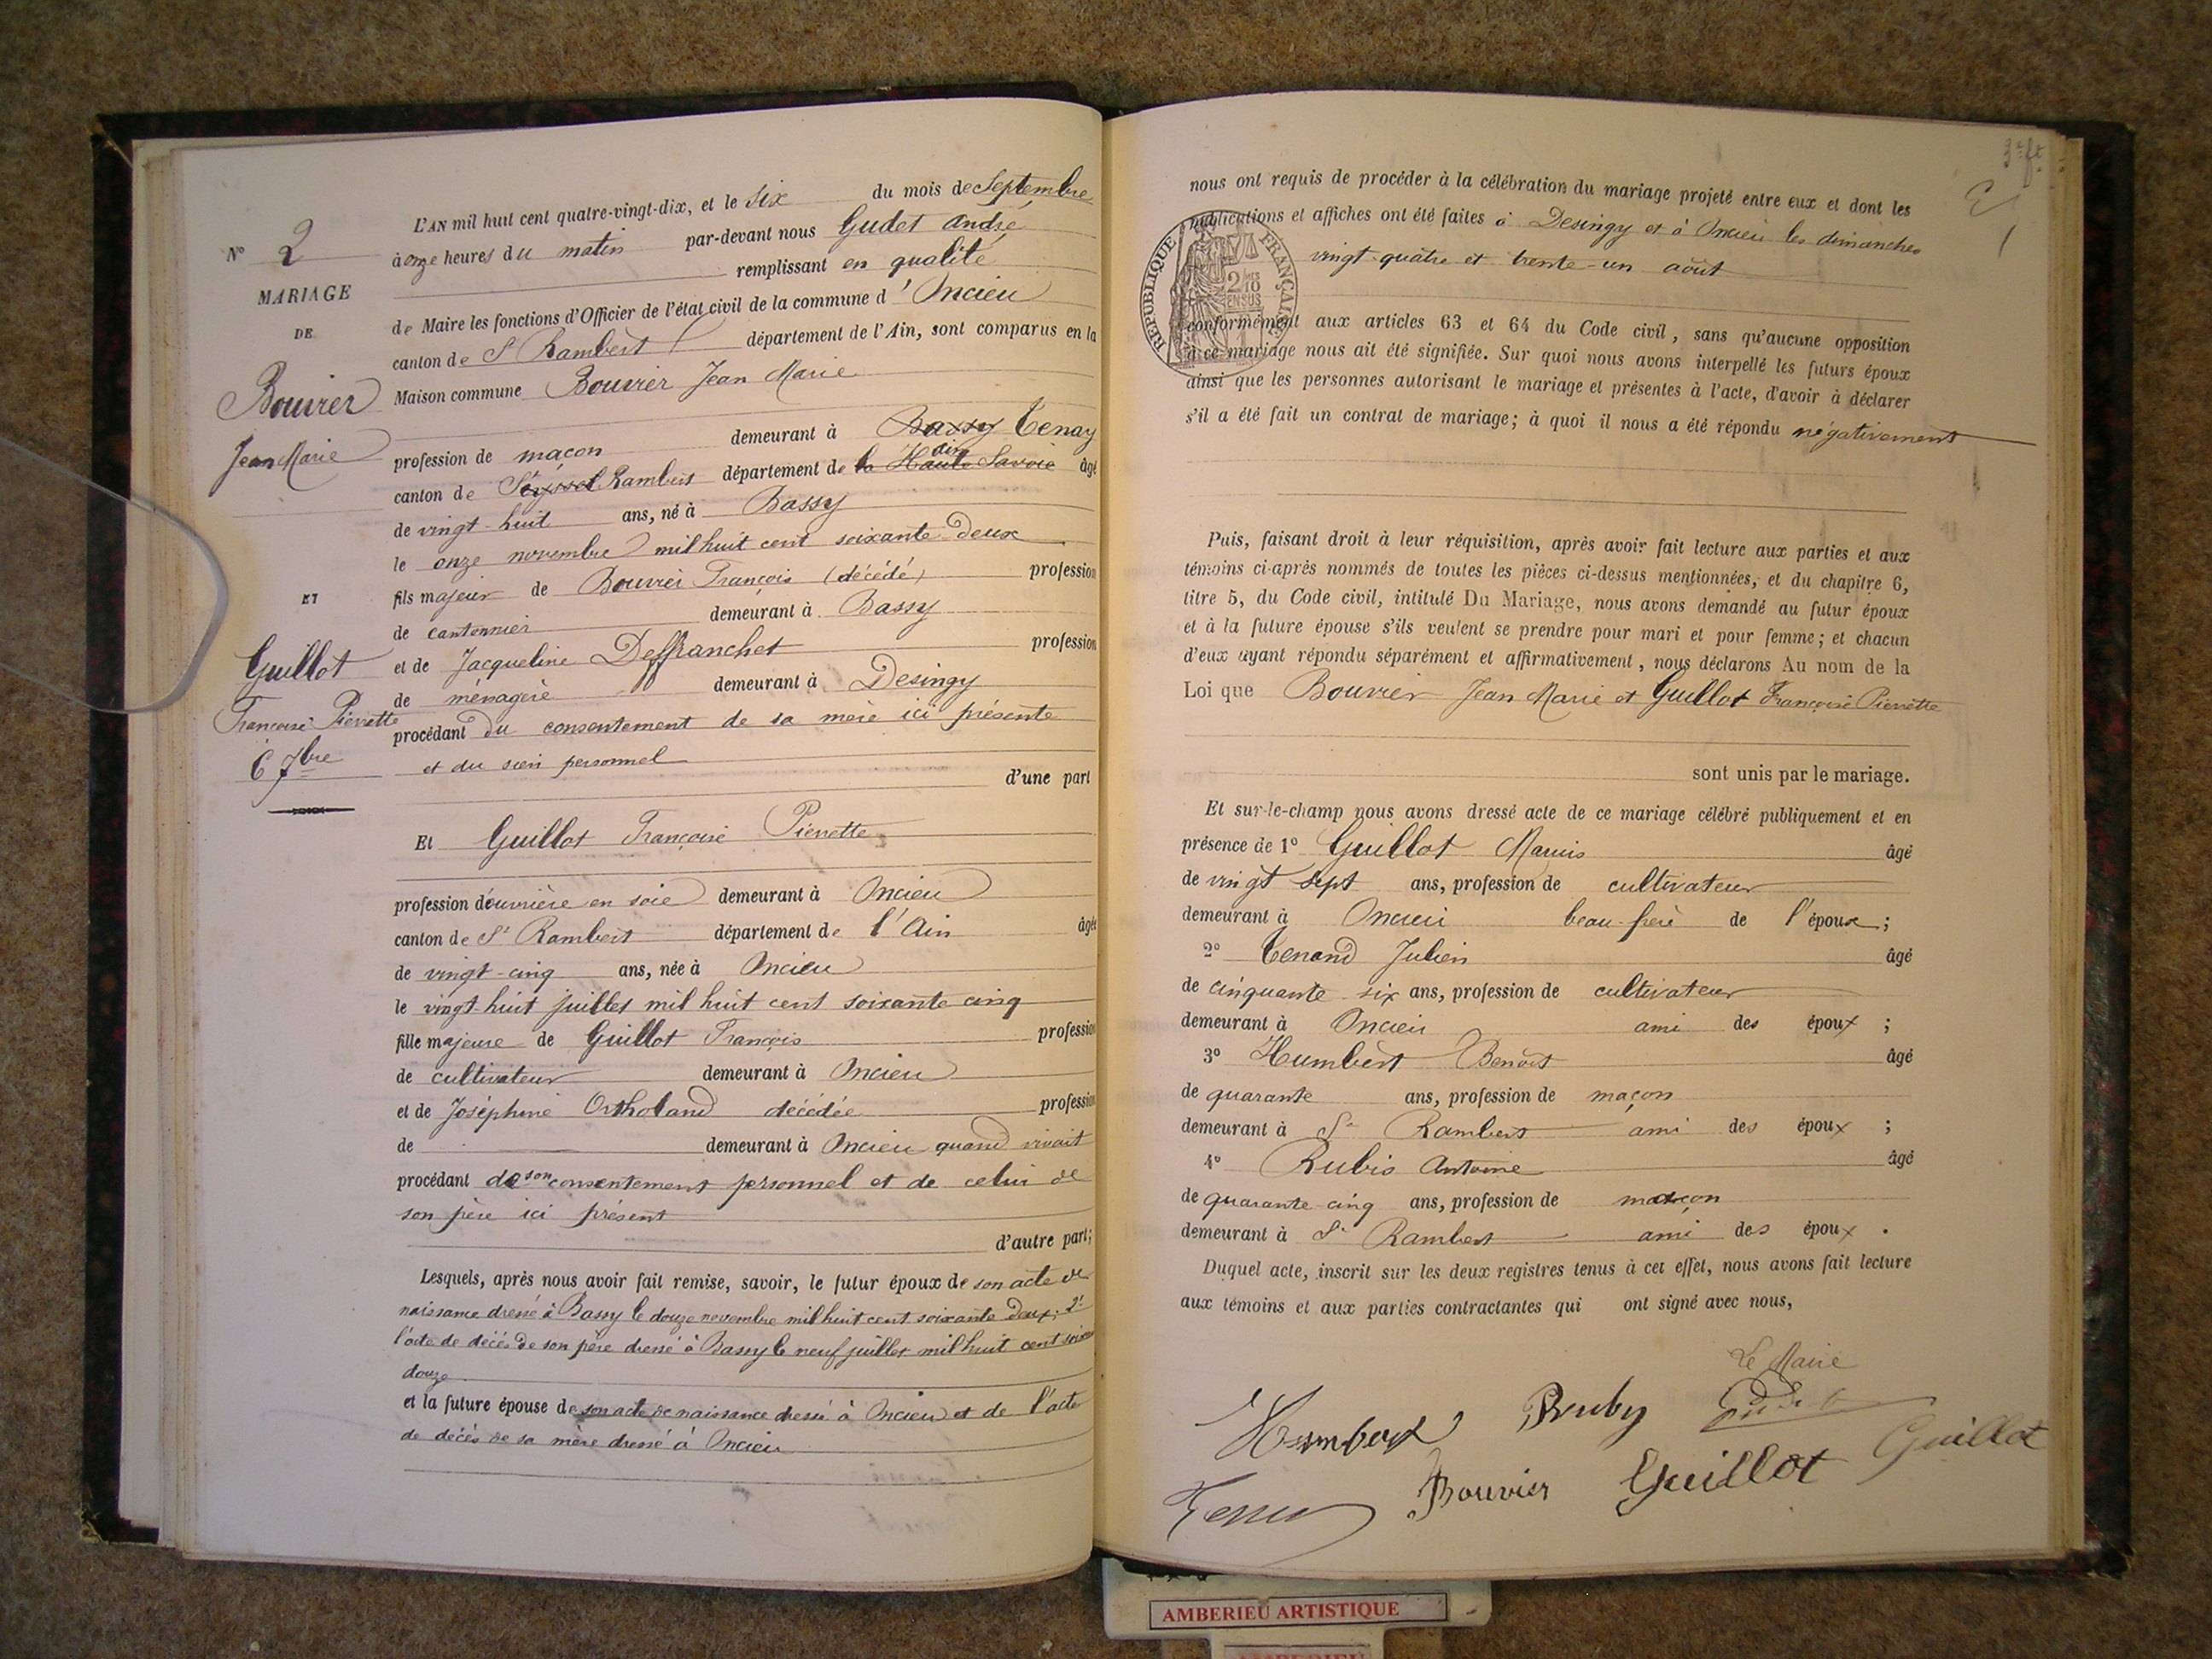 L'AN mil huit cent quatre-vingt-dix, et le six du mois de Septembre
à onze heures du matin par-devant nous Gudet André
remplissant en qualité
de Maire les fonctions d'Officier de l'état civil de la commune d'Oncieu
canton de St Rambert département de l'Ain, sont comparus en la
Maison commune Bouvier Jean Marie
demeurant à Bassy Tenay
profession de maçon
canton de Seyssel St Rambert département de la Haute Savoie ain âgé
de vingt-huit ans, né à Bassy
le onze novembre mil huit cent soixante deux
fils majeur de Bouvier François (décédé) profession
de cantonnier demeurant à Bassy
et de Jacqueline Deffranchet profession
de ménagère demeurant à Desingy
procédant du consentement de sa mère ici présente
et du sien personnel
d'une part
Et Guillot Françoise Pierrette
profession d'ouvrière en soie demeurant à Oncieu
canton de St Rambert département de l'Ain âgée
de vingt-cinq ans, née à Oncieu
le vingt-huit juillet mil huit cent soixante cinq
fille majeure de Guillot François profession
de cultivateur demeurant à Oncieu
et de Joséphine Ortholand décédée profession
de demeurant à Oncieu quand vivait
procédant de son consentement personnel et de celui de
son père ici présent
d'autre part;
Lesquels, après nous avoir fait remise, savoir, le futur époux de son acte de
naissance dressé à Bassy le douze novembre mil huit cent soixante deux; 2°
l'acte de décès de son père dressé à Bassy le neuf juillet mil huit cent soixan
douze
et la future épouse de son acte de naissance dressé à Oncieu et de l'acte
de décès de sa mère dressé à Oncieu
N° 2
MARIAGE
DE
Bouvier
Jean Marie
ET
Guillot
Françoise Pierrette
6 7bre
nous ont requis de procéder à la célébration du mariage projeté entre eux et dont les
publications et affiches ont été faites à Desingy et à Oncieu les dimanches
vingt-quatre et trente-un août
RÉPUBLIQUE FRANÇAISE
2 /10
EN SUS
conformément aux articles 63 et 64 du Code civil, sans qu'aucune opposition
à ce mariage nous ait été signifiée. Sur quoi nous avons interpellé les futurs époux
ainsi que les personnes autorisant le mariage et présentes à l'acte, d'avoir à déclarer
s'il a été fait un contrat de mariage; à quoi il nous a été répondu négativement
Puis, faisant droit à leur réquisition, après avoir fait lecture aux parties et aux
témoins ci-après nommés de toutes les pièces ci-dessus mentionnées, et du chapitre 6,
titre 5, du Code civil, intitulé Du Mariage, nous avons demandé au futur époux
et à la future épouse s'ils veulent se prendre pour mari et pour femme; et chacun
d'eux ayant répondu séparément et affirmativement, nous déclarons Au nom de la
Loi que Bouvier Jean Marie et Guillot Françoise Pierrette
sont unis par le mariage.
Et sur-le-champ nous avons dressé acte de ce mariage célébré publiquement et en
présence de 1° Guillot Marius âgé
de vingt sept ans, profession de cultivateur
demeurant à Oncieu beau-frère de l'époux;
2° Tenand Julien âgé
de cinquante six ans, profession de cultivateur
demeurant à Oncieu ami des époux;
3° Humbert Benoit âgé
de quarante ans, profession de maçon
demeurant à St Rambert ami des époux;
4° Rubis Antoine âgé
de quarante cinq ans, profession de maçon
demeurant à St Rambert ami des époux.
Duquel acte, inscrit sur les deux registres tenus à cet effet, nous avons fait lecture
aux témoins et aux parties contractantes qui ont signé avec nous,
Le Maire
Humbert Ruby Gudet
Bouvier Guillot Guillot
AMBERIEU ARTISTIQUE
AMBERIEU